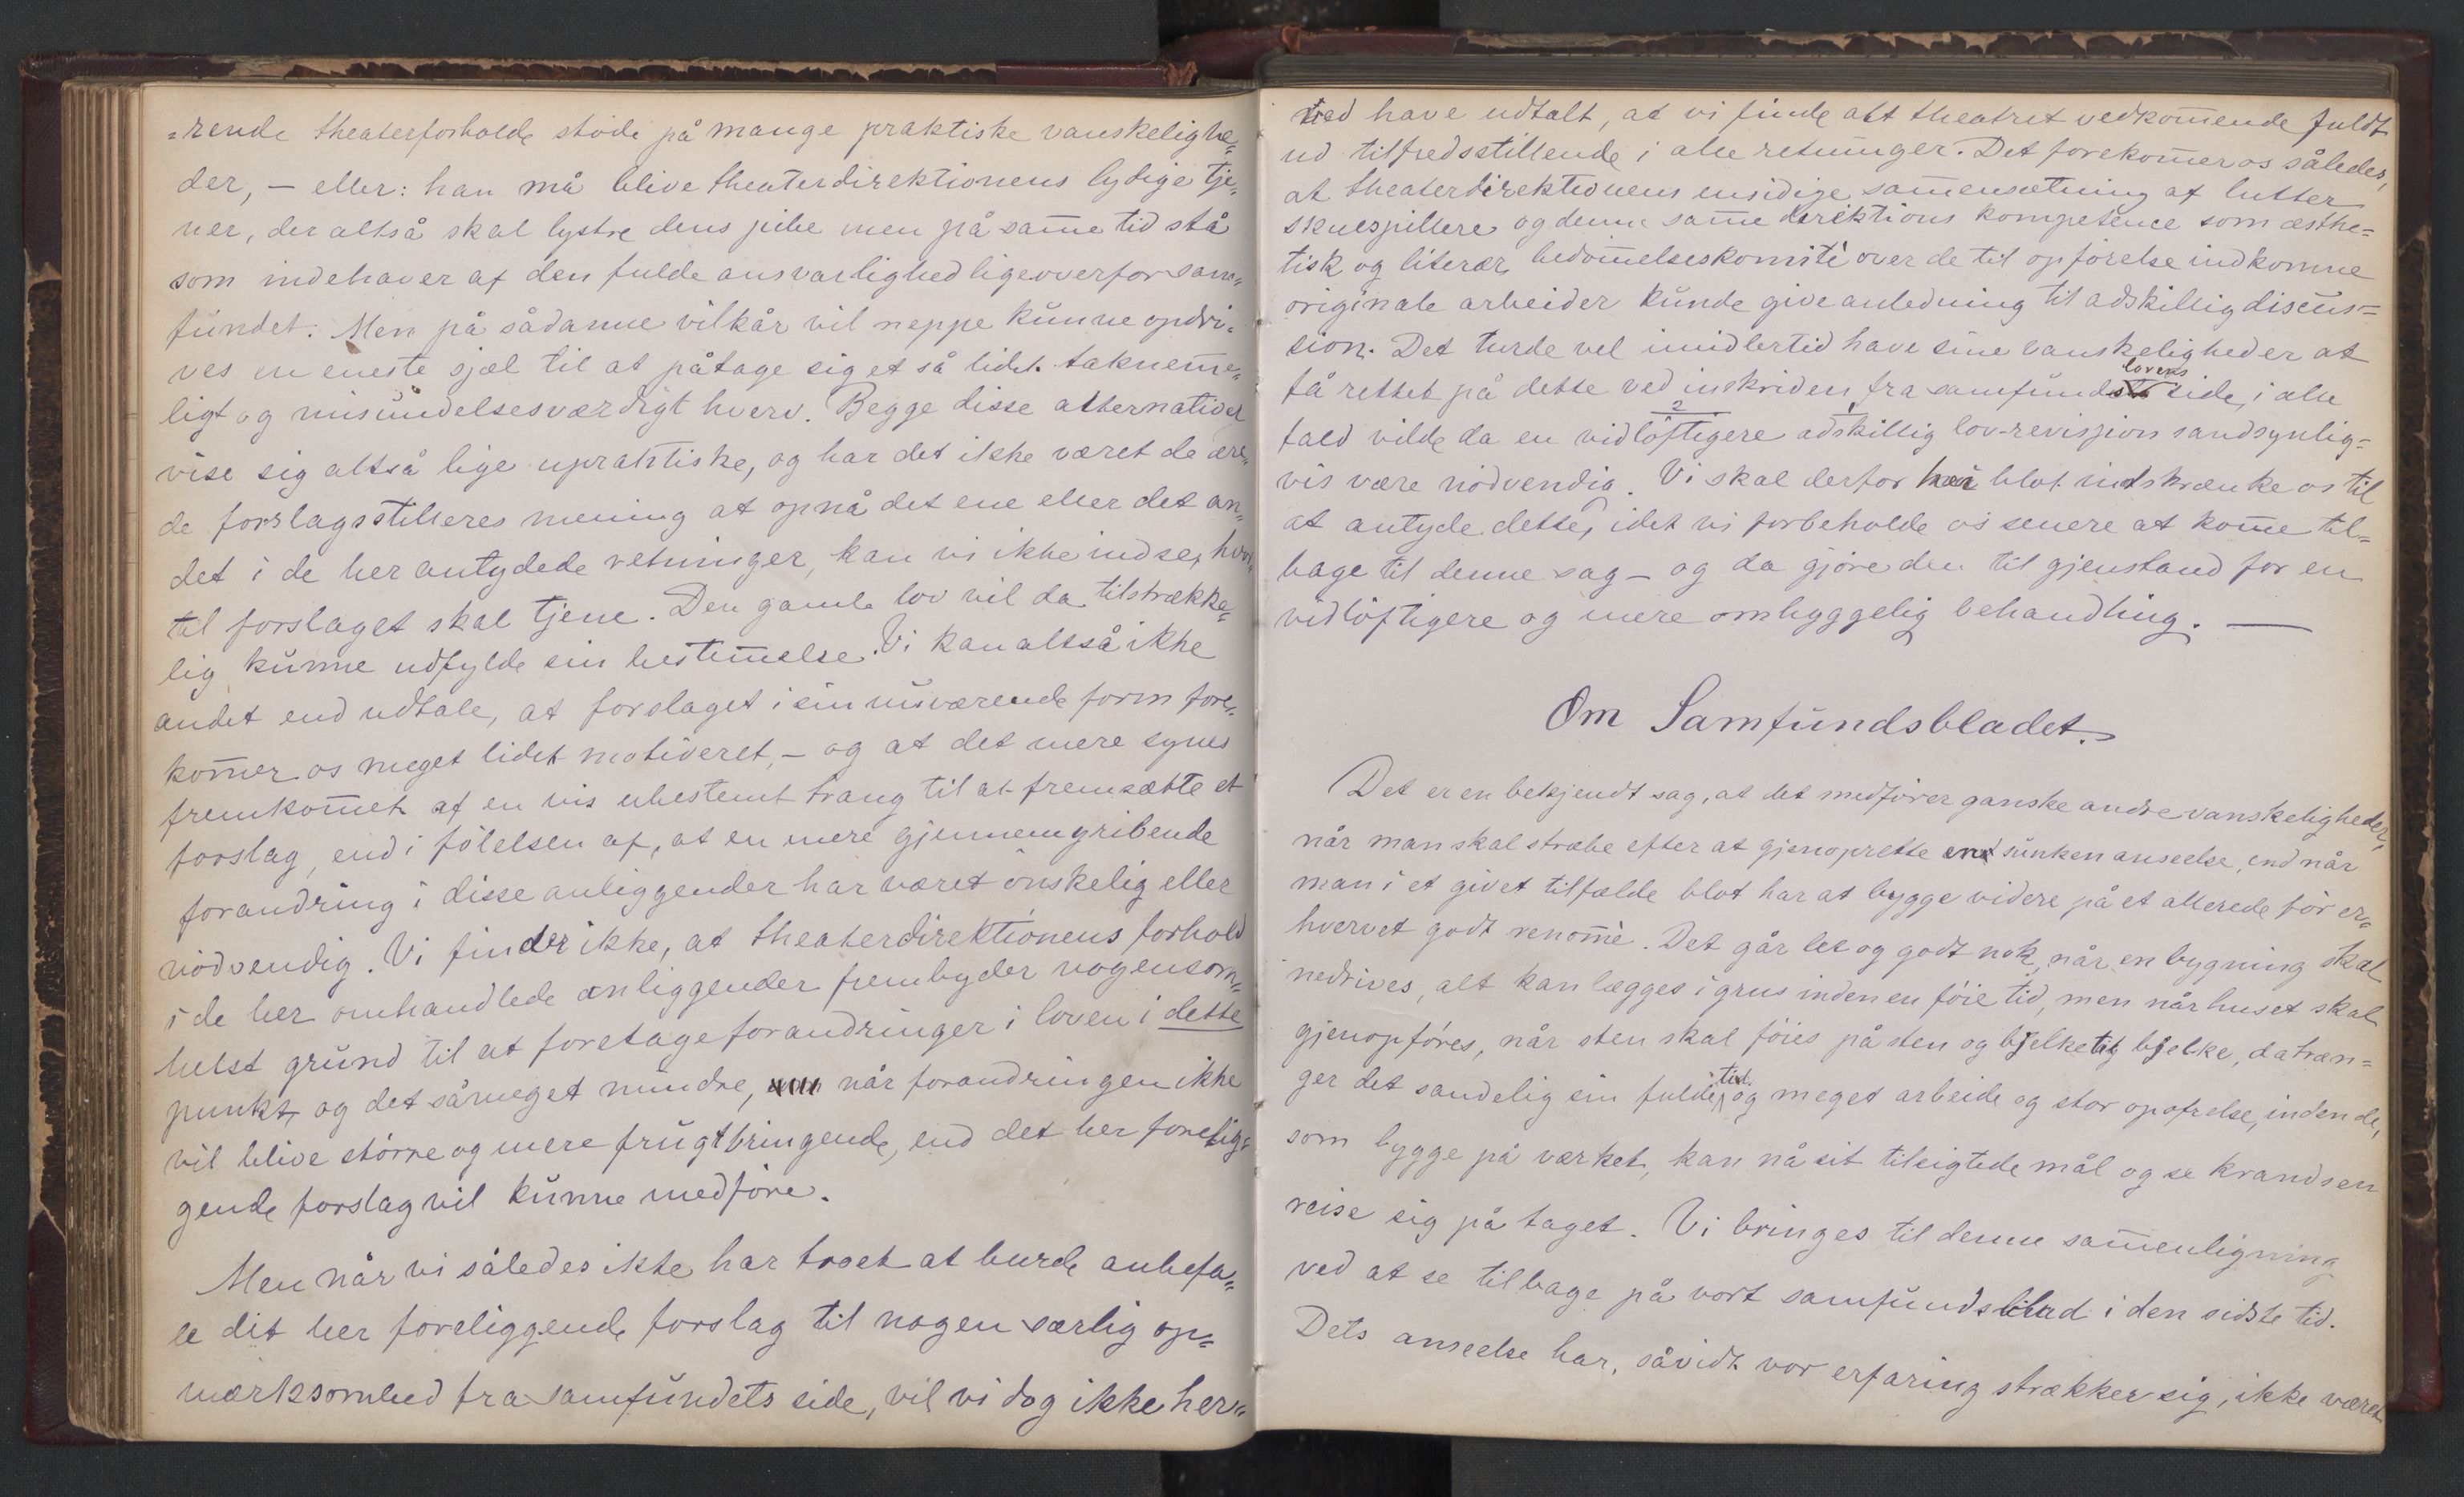 =rende theaterforholde støde på mange praktiske vanskelighe=
der, – eller: han må blive theaterdirektionens lydige tje=
ner, der altså skal lystre dens pibe men på sam̅e tid stå
som indehaver af den fulde ansvarlighed ligeoverfor sam=
fundet. Men på sådanne vilkår vil neppe kunne opdri=
ves en eneste sjæl til at påtage sig et så lidet taknem̅e=
ligt og misundelsesværdigt hverv. Begge disse alternativer
vise sig altså lige upraktiske, og har det ikke været de ære=
de forslagsstilleres mening at opnå det ene eller det an=
det i de her antydede retninger, kan vi ikke indse, hvor=
til forslaget skal tjene. Den gamle lov vil da tilstrække=
lig kunne udfylde sin bestem̅else. Vi kan altså ikke
andet end udtale, at forslaget i sin nuværende form fore=
kom̅er os meget lidet motiveret, – og at det mere synes
fremkom̅et af en vis ubestemt trang til at fremsætte et
forslag, end i følelsen af, at en mere gjennemgribende
forandring i disse anliggender har været ønskelig eller
nødvendig. Vi finder ikke, at theaterdirektionens forhold
i de her omhandlede anliggender frembyder nogensom=
helst grund til at foretage forandringer i loven i dette
punkt, og det såmeget mindre, når forandringen ikke
vil blive større og mere frugtbringende, end det her forelig=
gende forslag vil kunne medføre.
Men når vi således ikke har troet at burde anbefa=
le det her foreliggende forslag til nogen særlig op=
mærksomhed fra samfundets side, vil vi dog ikke her=
ved have udtalt, at vi finde alt theatret vedkom̅ende fuldt
ud tilfredsstillende i alle retninger. Det forekom̅er os således,
at theaterdirektionens ensidige sam̅ensætning af lutter
skuespillere og denne sam̅e direktions kompetence som æsthe=
tisk og literær bedøm̅elseskomité over de til opførelse indkomne
originale arbeider kunde give anledning til adskillig discus=
sion. Det turde vel imidlertid have sine vanskeligheder at
lovens
få rettet på dette ved inskriden fra samfundets side, i alle
2 1
fald vilde da en vidløftigere adskillig lov-revisjion sandsynlig=
vis være nødvendig. Vi skal derfor her blot indskrænke os til
at antyde dette, idet vi forbeholde os senere at kom̅e til=
bage til denne sag – og da gjøre den til gjenstand for en
vidløftigere og mere omhyggelig behandling. —
Om Samfundsbladet.
Det er en bekjendt sag, at det medfører ganske andre vanskeligheder,
når man skal stræbe efter at gjenoprette en sunken anseelse, end når
man i et givet tilfælde blot har at bygge videre på et allerede før er=
hvervet godt renom̅é. Det går let og godt nok, når en bygning skal
nedrives, alt kan lægges i grus inden en føie tid, men når huset skal
gjenopføres, når sten skal føies på sten og bjelke til bjelke, da træn=
tid
ger det sandelig sin fulde, og meget arbeide og stor opofrelse, inden de,
som bygge på værket, kan nå sit tilsigtede mål og se krandsen
reise sig på taget. Vi bringes til denne sam̅enligning
ved at se tilbage på vort samfundsblad i den sidste tid.
Dets anseelse har, såvidt vor erfaring strækker sig, ikke været